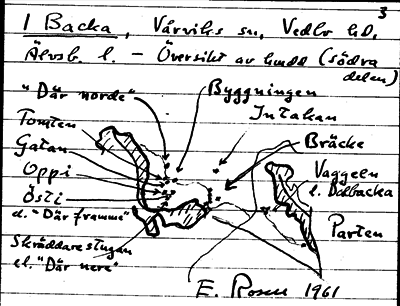 3
1 Backa, Vårviks sn, Vedbo hd,
Älvsb. l. – Översikt av hmdt (södra
delen)
"Där norde"
Byggningen
Tomten
Intakan
Gatan
Bräcke
Oppi
Vaggeln
Östi
l. Dalbacka
el. "Där framme"
Parten
Skräddarestugan
el. "Där nere"
E. Rosen 1961